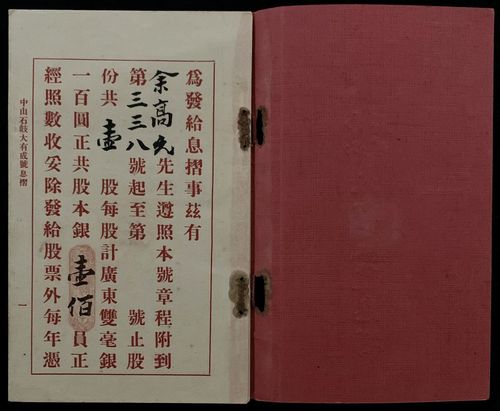 為發給息摺事茲有
余高允先生遵照本號章程附到
第三三八號起至第 號止股
份共壹股每股計廣東雙毫銀
一百圓正共股本銀壹佰員正
經照數收妥除發給股票外每年憑
中山石岐大有成號息摺
一